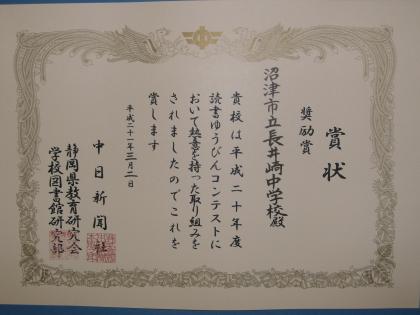 賞状
奨励賞
沼津市立長井崎中学校殿
貴校は平成二十年度
読書ゆうびんコンテストに
おいて熱意を持った取り組みを
されましたのでこれを
賞します
平成二十一年三月二日
中日新聞社
静岡県教育研究会
学校図書館研究部